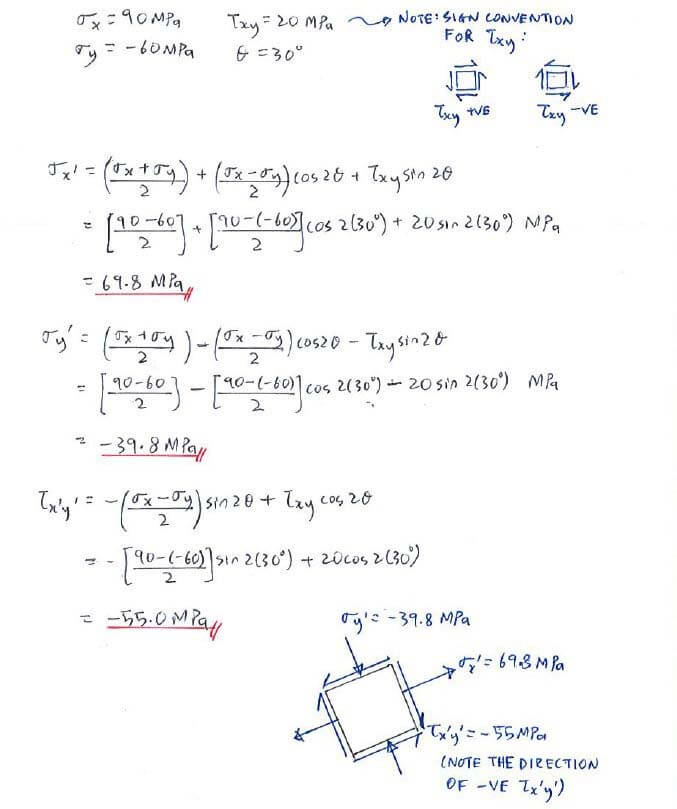 σx = 90 MPa τxy = 20 MPa → NOTE: SIGN CONVENTION
σy = -60 MPa θ = 30° FOR τxy:
τxy +VE τxy -VE
σx' = (σx + σy / 2) + (σx - σy / 2) cos 2θ + τxy sin 2θ
= [90 - 60 / 2] + [90 - (-60) / 2] cos 2(30°) + 20 sin 2(30°) MPa
= 69.8 MPa
σy' = (σx + σy / 2) - (σx - σy / 2) cos 2θ - τxy sin 2θ
= [90 - 60 / 2] - [90 - (-60) / 2] cos 2(30°) - 20 sin 2(30°) MPa
= -39.8 MPa
τx'y' = -(σx - σy / 2) sin 2θ + τxy cos 2θ
= -[90 - (-60) / 2] sin 2(30°) + 20 cos 2(30°)
= -55.0 MPa
σy' = -39.8 MPa
σx' = 69.8 MPa
τx'y' = -55 MPa
(NOTE THE DIRECTION
OF -VE τx'y')